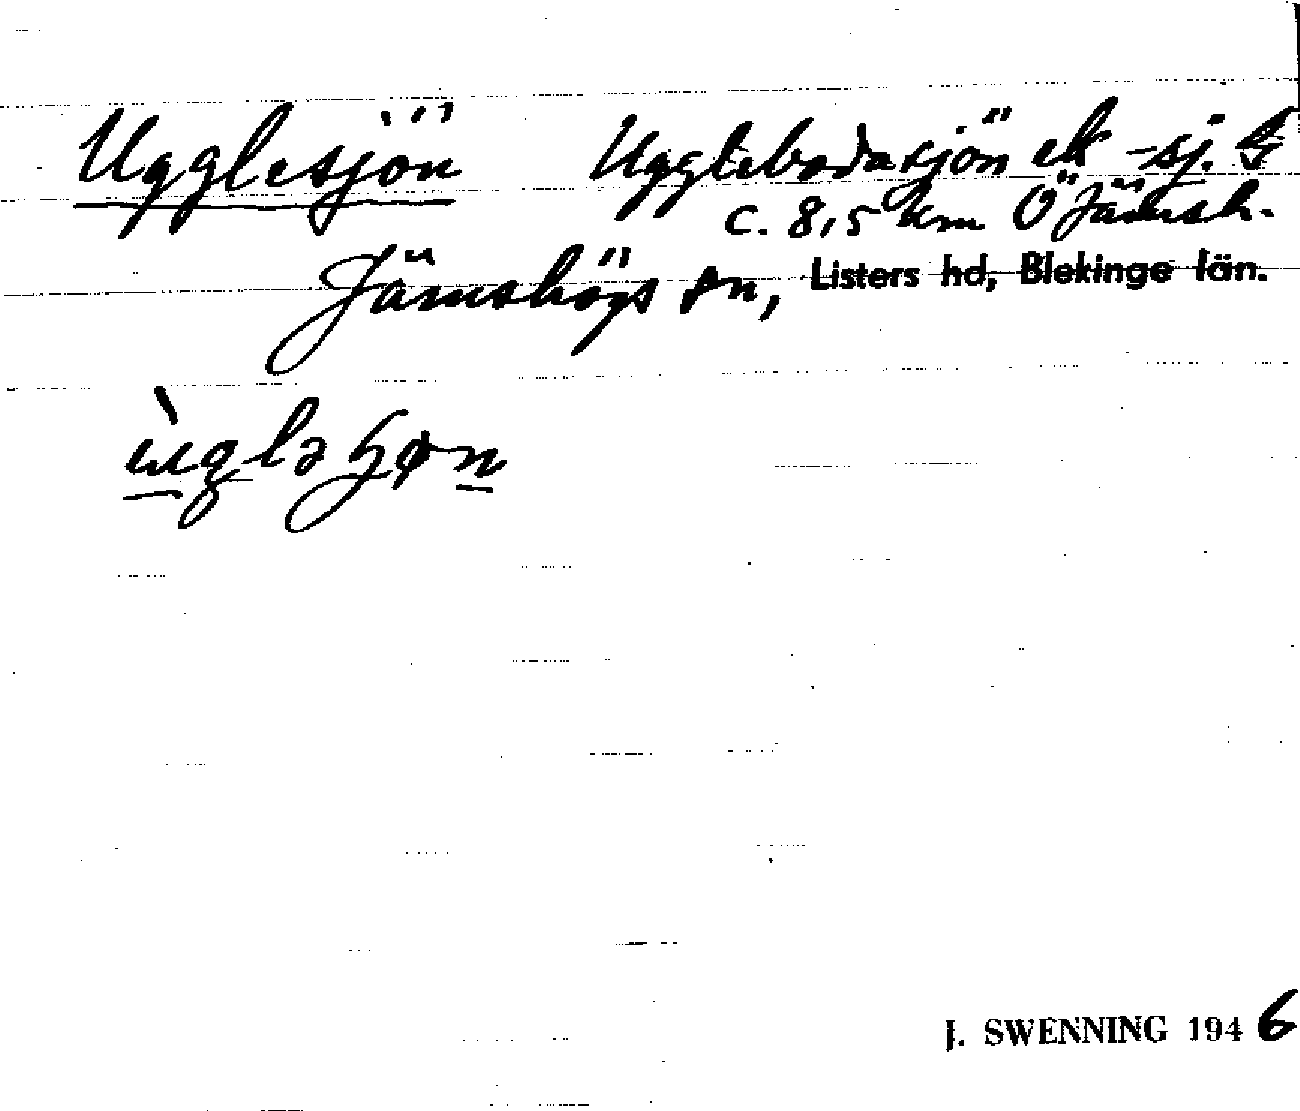 Ugglesjön Ugglebodasjön ek -sj.
c. 8,5 km Ö Jämsh.
Jämshögs sn, Listers hd, Blekinge län.
J. SWENNING 1946